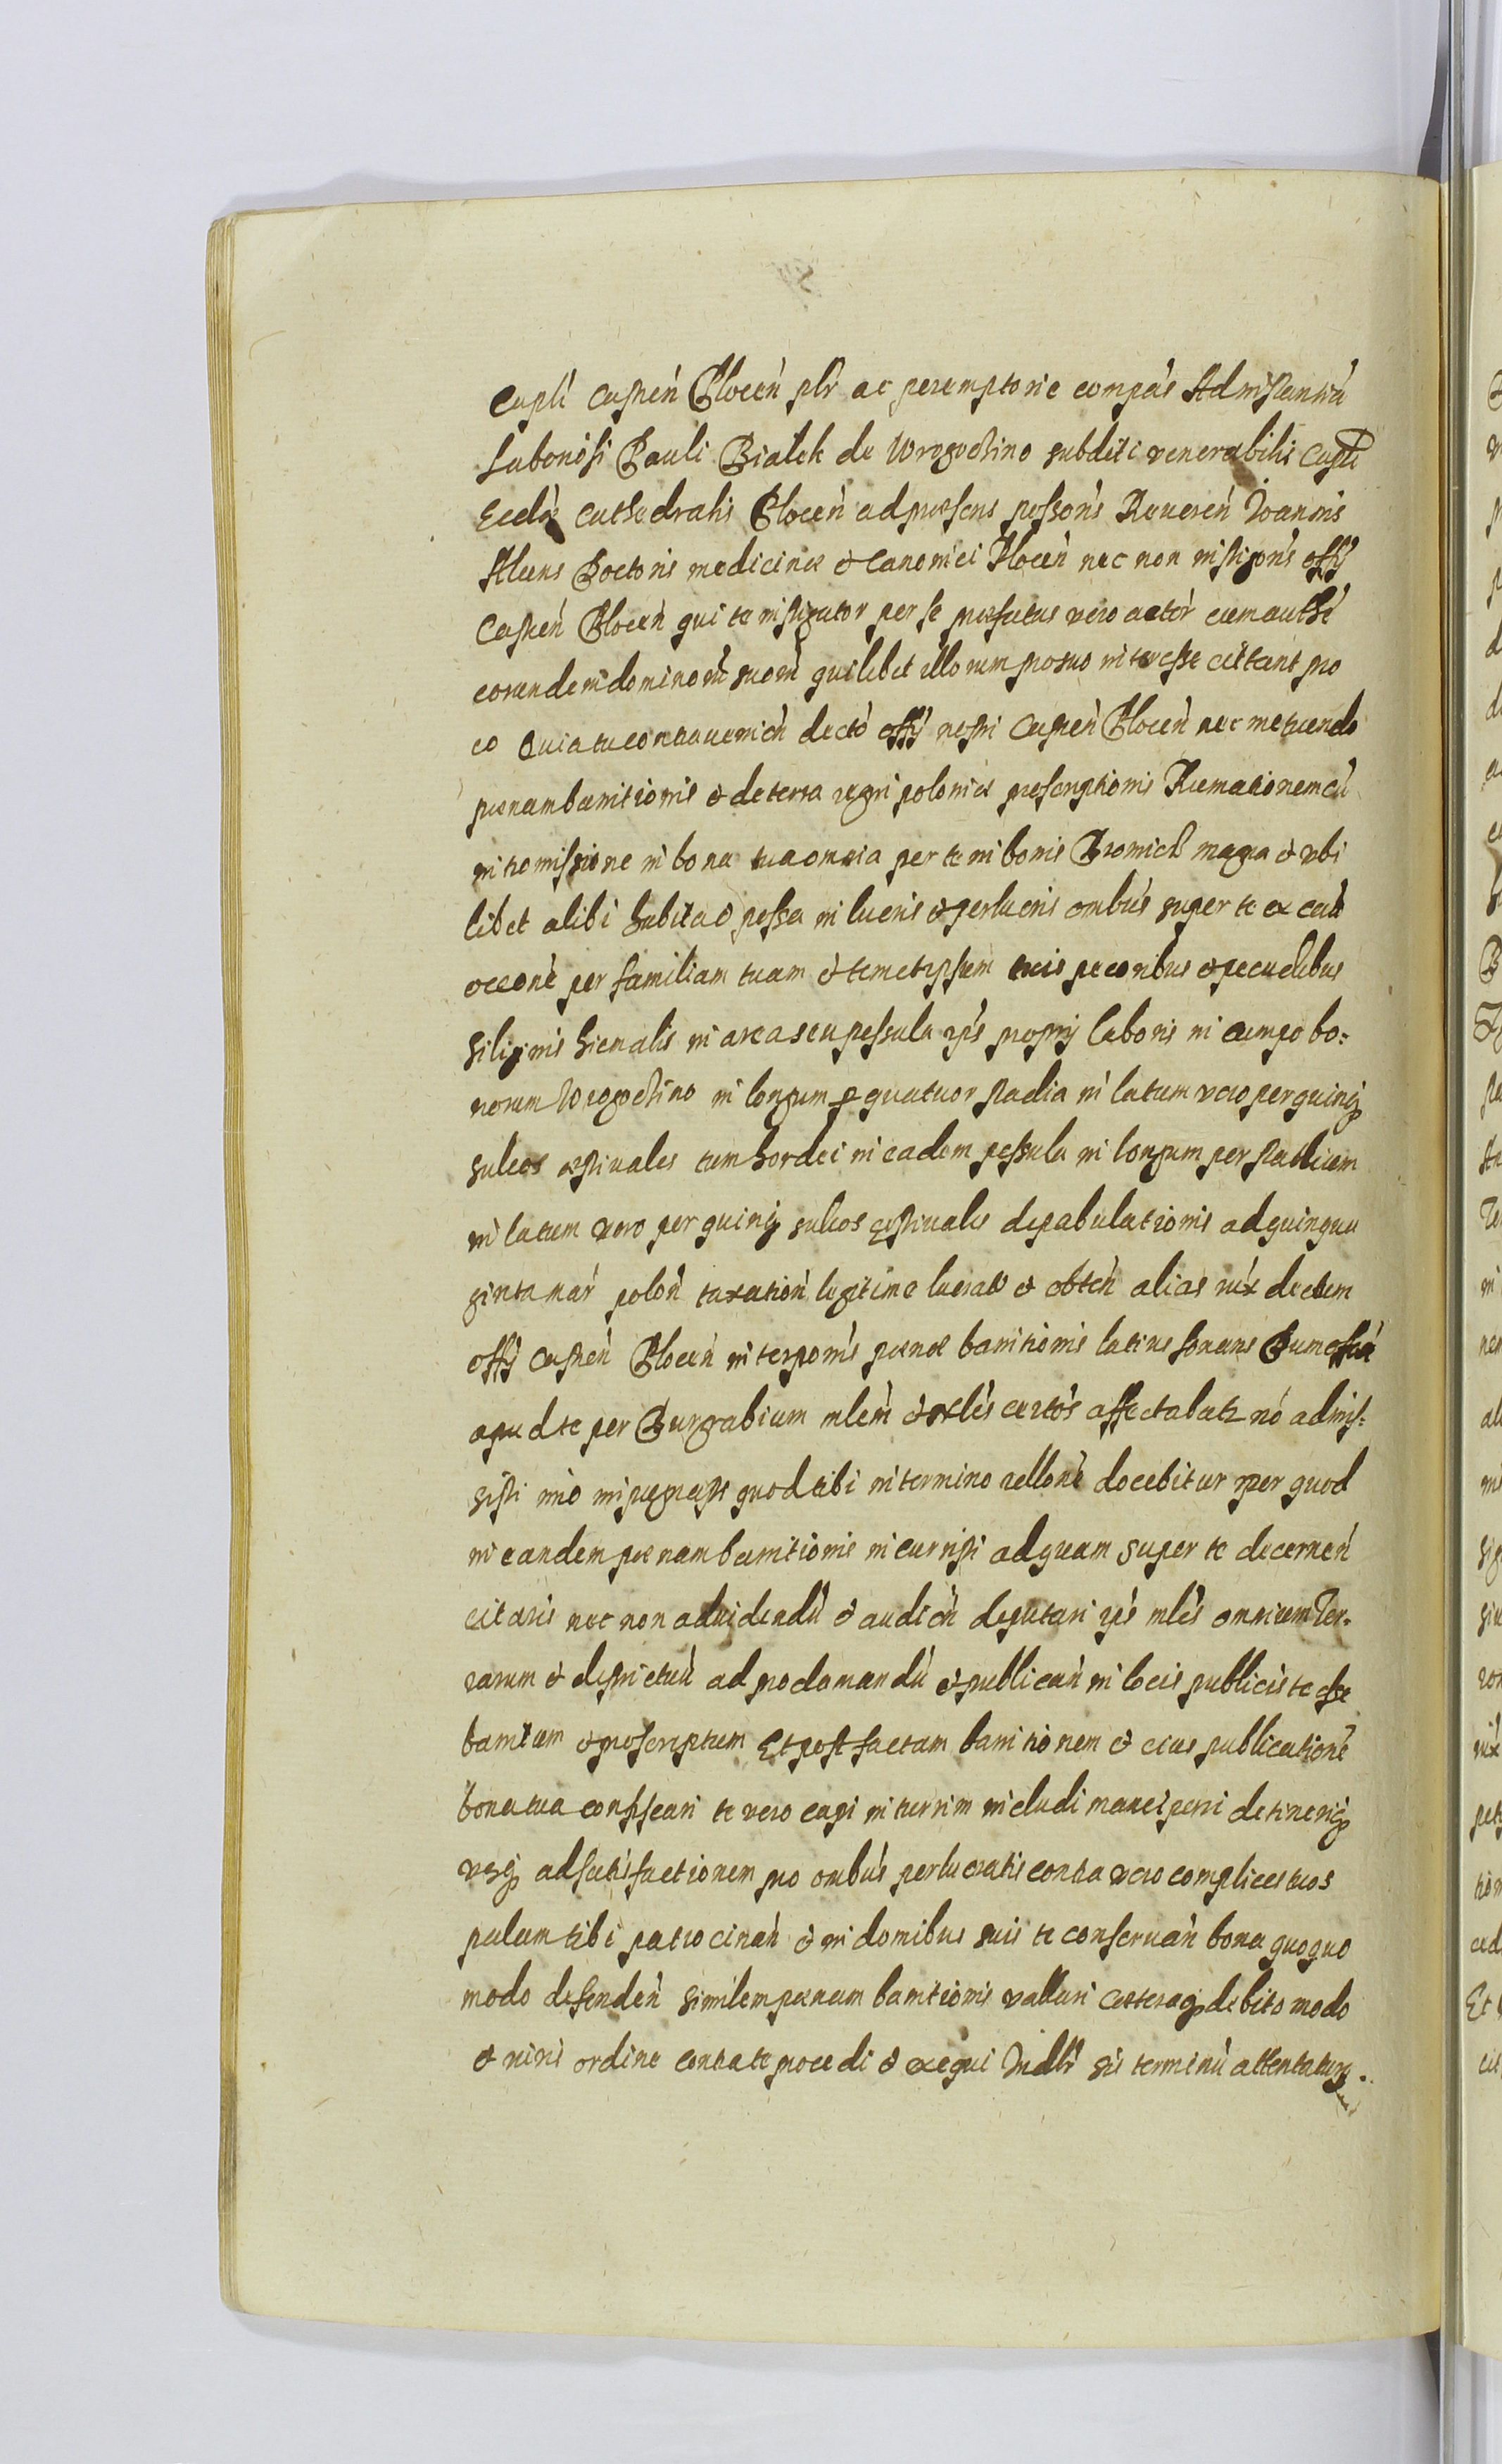 Capli Castren Plocen plr ac peremptorie compás Ad instantiá
Laboriosi Pauli Bialek de Wrogochino subditi venerabilis Capli
Ecclæ Cathedralis Plocen ad præsens possoris Reueren Joannis
Doctoris medicinæ & Canonici Plocen nec non instigoris offÿ
Castren Plocen qui te instigator per se præfatus vero actor cum authé
eorundem dominorũ suorũ quilibet illorum pro suo interesse cittant pro
eo Quia tu contraueniẽn decto offÿ nostri Castren Plocen nec metuendo
pænam bannitionis & de terra regni poloniæ proscriptionis Rumationem cũ
intromissione in bona tua omnia per te in bonis Bromierz magna & vbi
libet alibi habita & possa in lucris & perlucris ombus super te ex eaũ
occone per familiam tuam & temetipsum tuis pecoribus & pecudibus
siliginis hiemalis in area seu possula ips proprÿ laboris in campo bo:
norum Wrogochino in longum p quatuor stadia in latum vero per quinq
sulcos æstiuales tum hordei in eadem possula in longum per stadium
in latum vero per quinq sulcos æstiuales depabulationis ad quinqua
ginta mar polon taxation legitime lucrat & obten alias iux dectum
offÿ Castren Plocen interpoñis pænæ bannitionis latius sonans Dum
apud te per Burgrabium mlem & nobles certos affectabatr nó admis:
sisti imo impegristi quod tibi in termino rellone docebitur per quod
in eandem pænam bannitionis incurristi ad quam super te decernen
citaris nec non ad videndũ & audien deputari ips mles omnium Ter:
rarum & districtuũ ad proclamandũ & publicaũ in locis publicis te esse
bannitum & proscriptum Et post factam bannitionem & eius publicationé
bona tua confiscari te vero capi in turrim includi mancipari detineriq
vsq ad satisfactionem pro ombus perlucratis contra vero complices tuos
palam tibi patrocinan & in domibus suis te conseruan bona quoquo
modo defenden similem pænam bannitionis vallari cæteraq debito modo
& iuris ordine contra te procedi & exequi Indlr sis terminũ attentaturq.